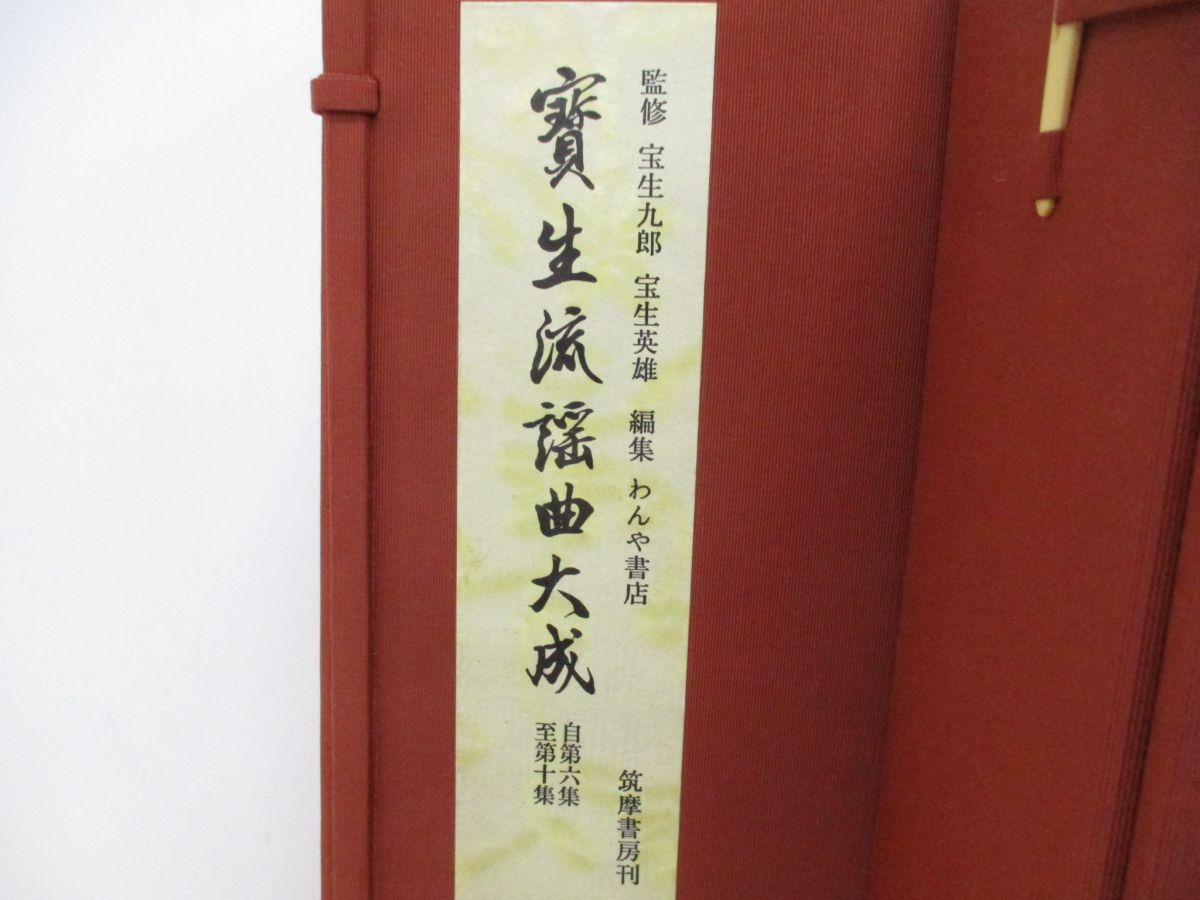 監修 宝生九郎 宝生英雄 編集 わんや書店 筑摩書房刊
寶生流謡曲大成
自第六集
至第十集